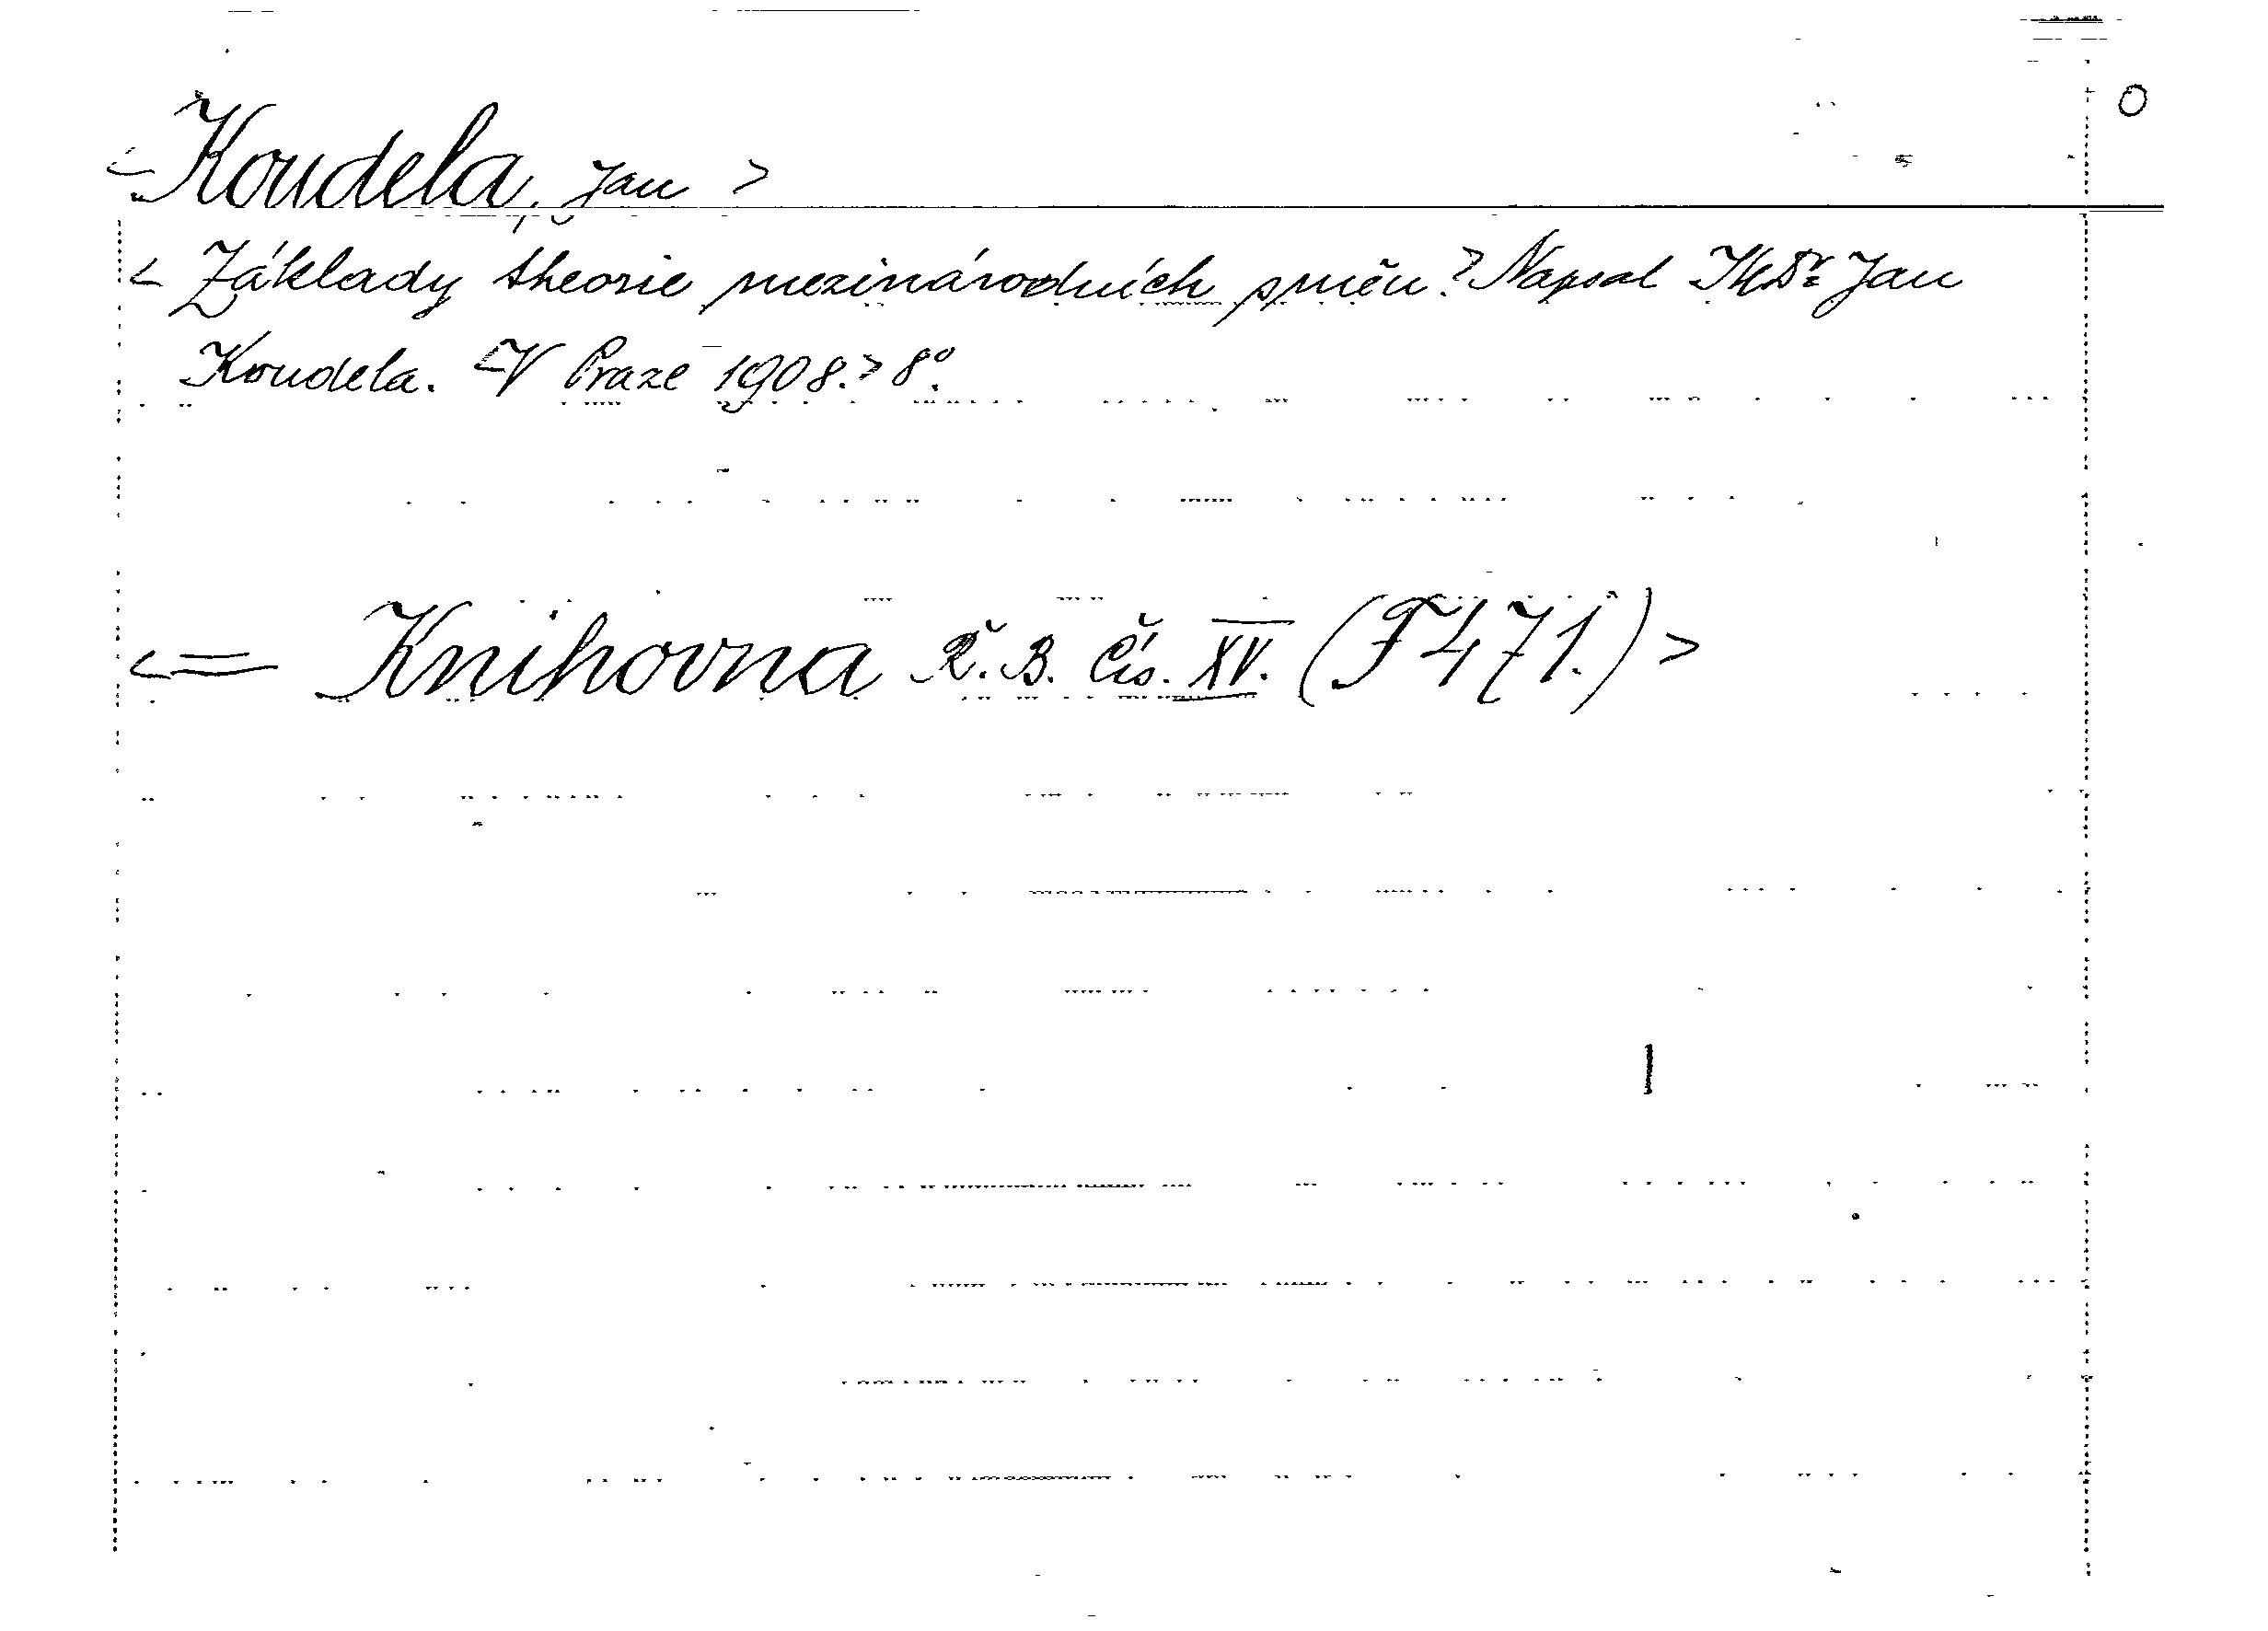 O
<Koudela, Jan>
<Základy theorie mezinárodních směn.> Napsal JUDr. Jan
Koudela. <V Praze 1908.> 8°.
<= Knihovna Ř. B. Čís. XV. (F471.)>